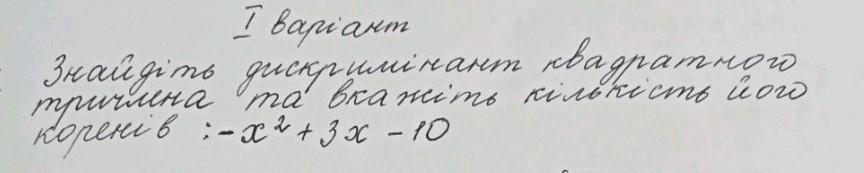 I варіант
Знайдіть дискримінант квадратного
тричлена та вкажіть кількість його
коренів : -x² + 3x - 10